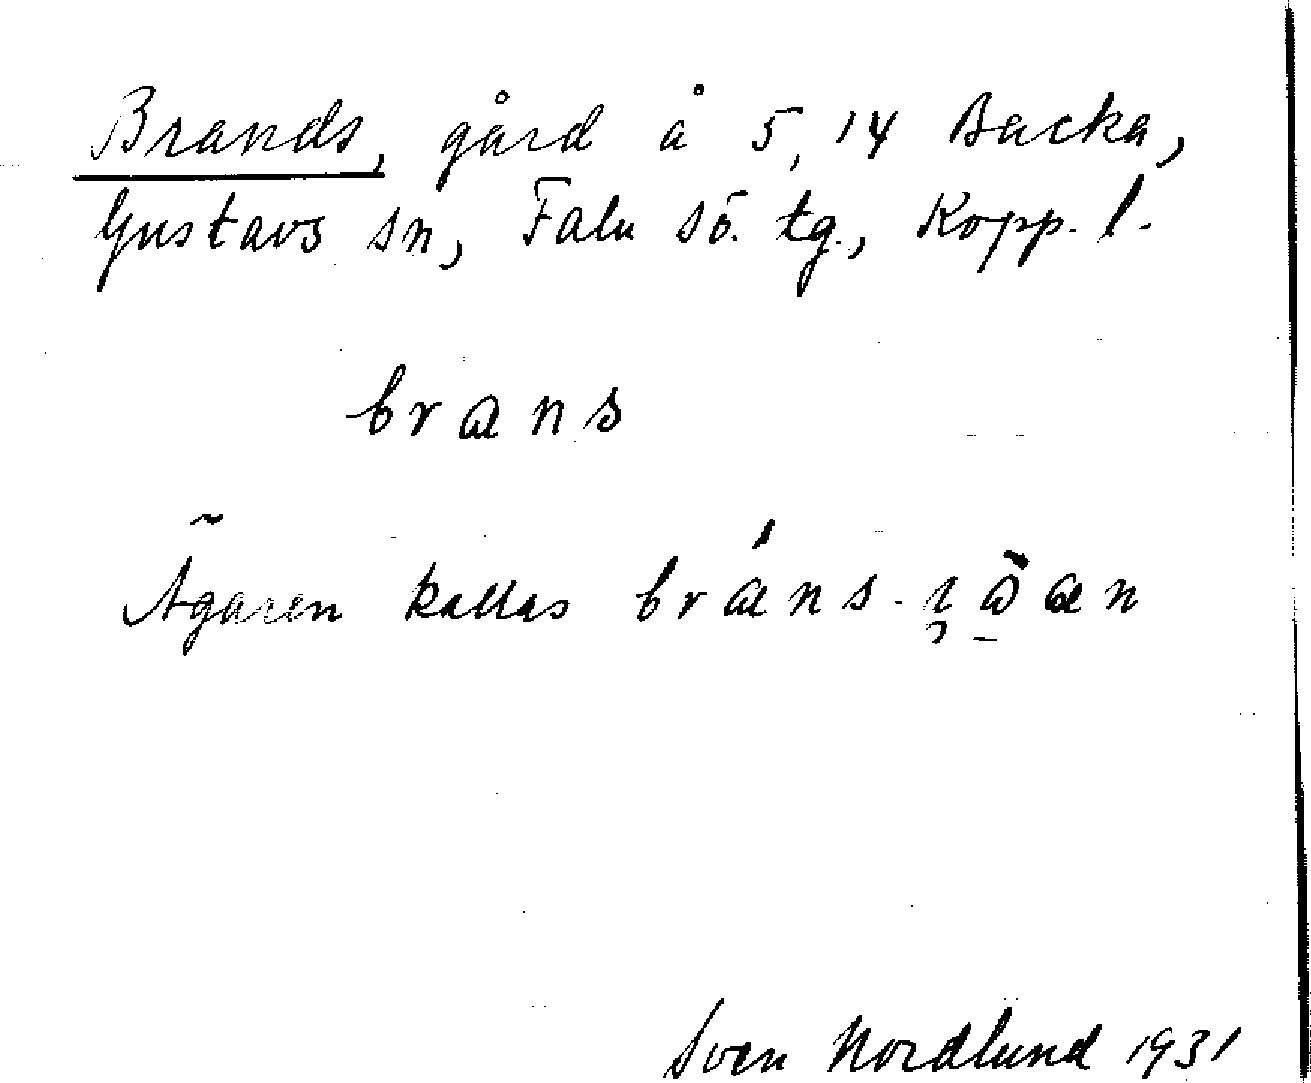 Brands, gård å 5, 14 Backa,
Gustavs sn, Falu sö. tg., Kopp. l.
brans
Ägaren kallas
Sven Nordlund 1931